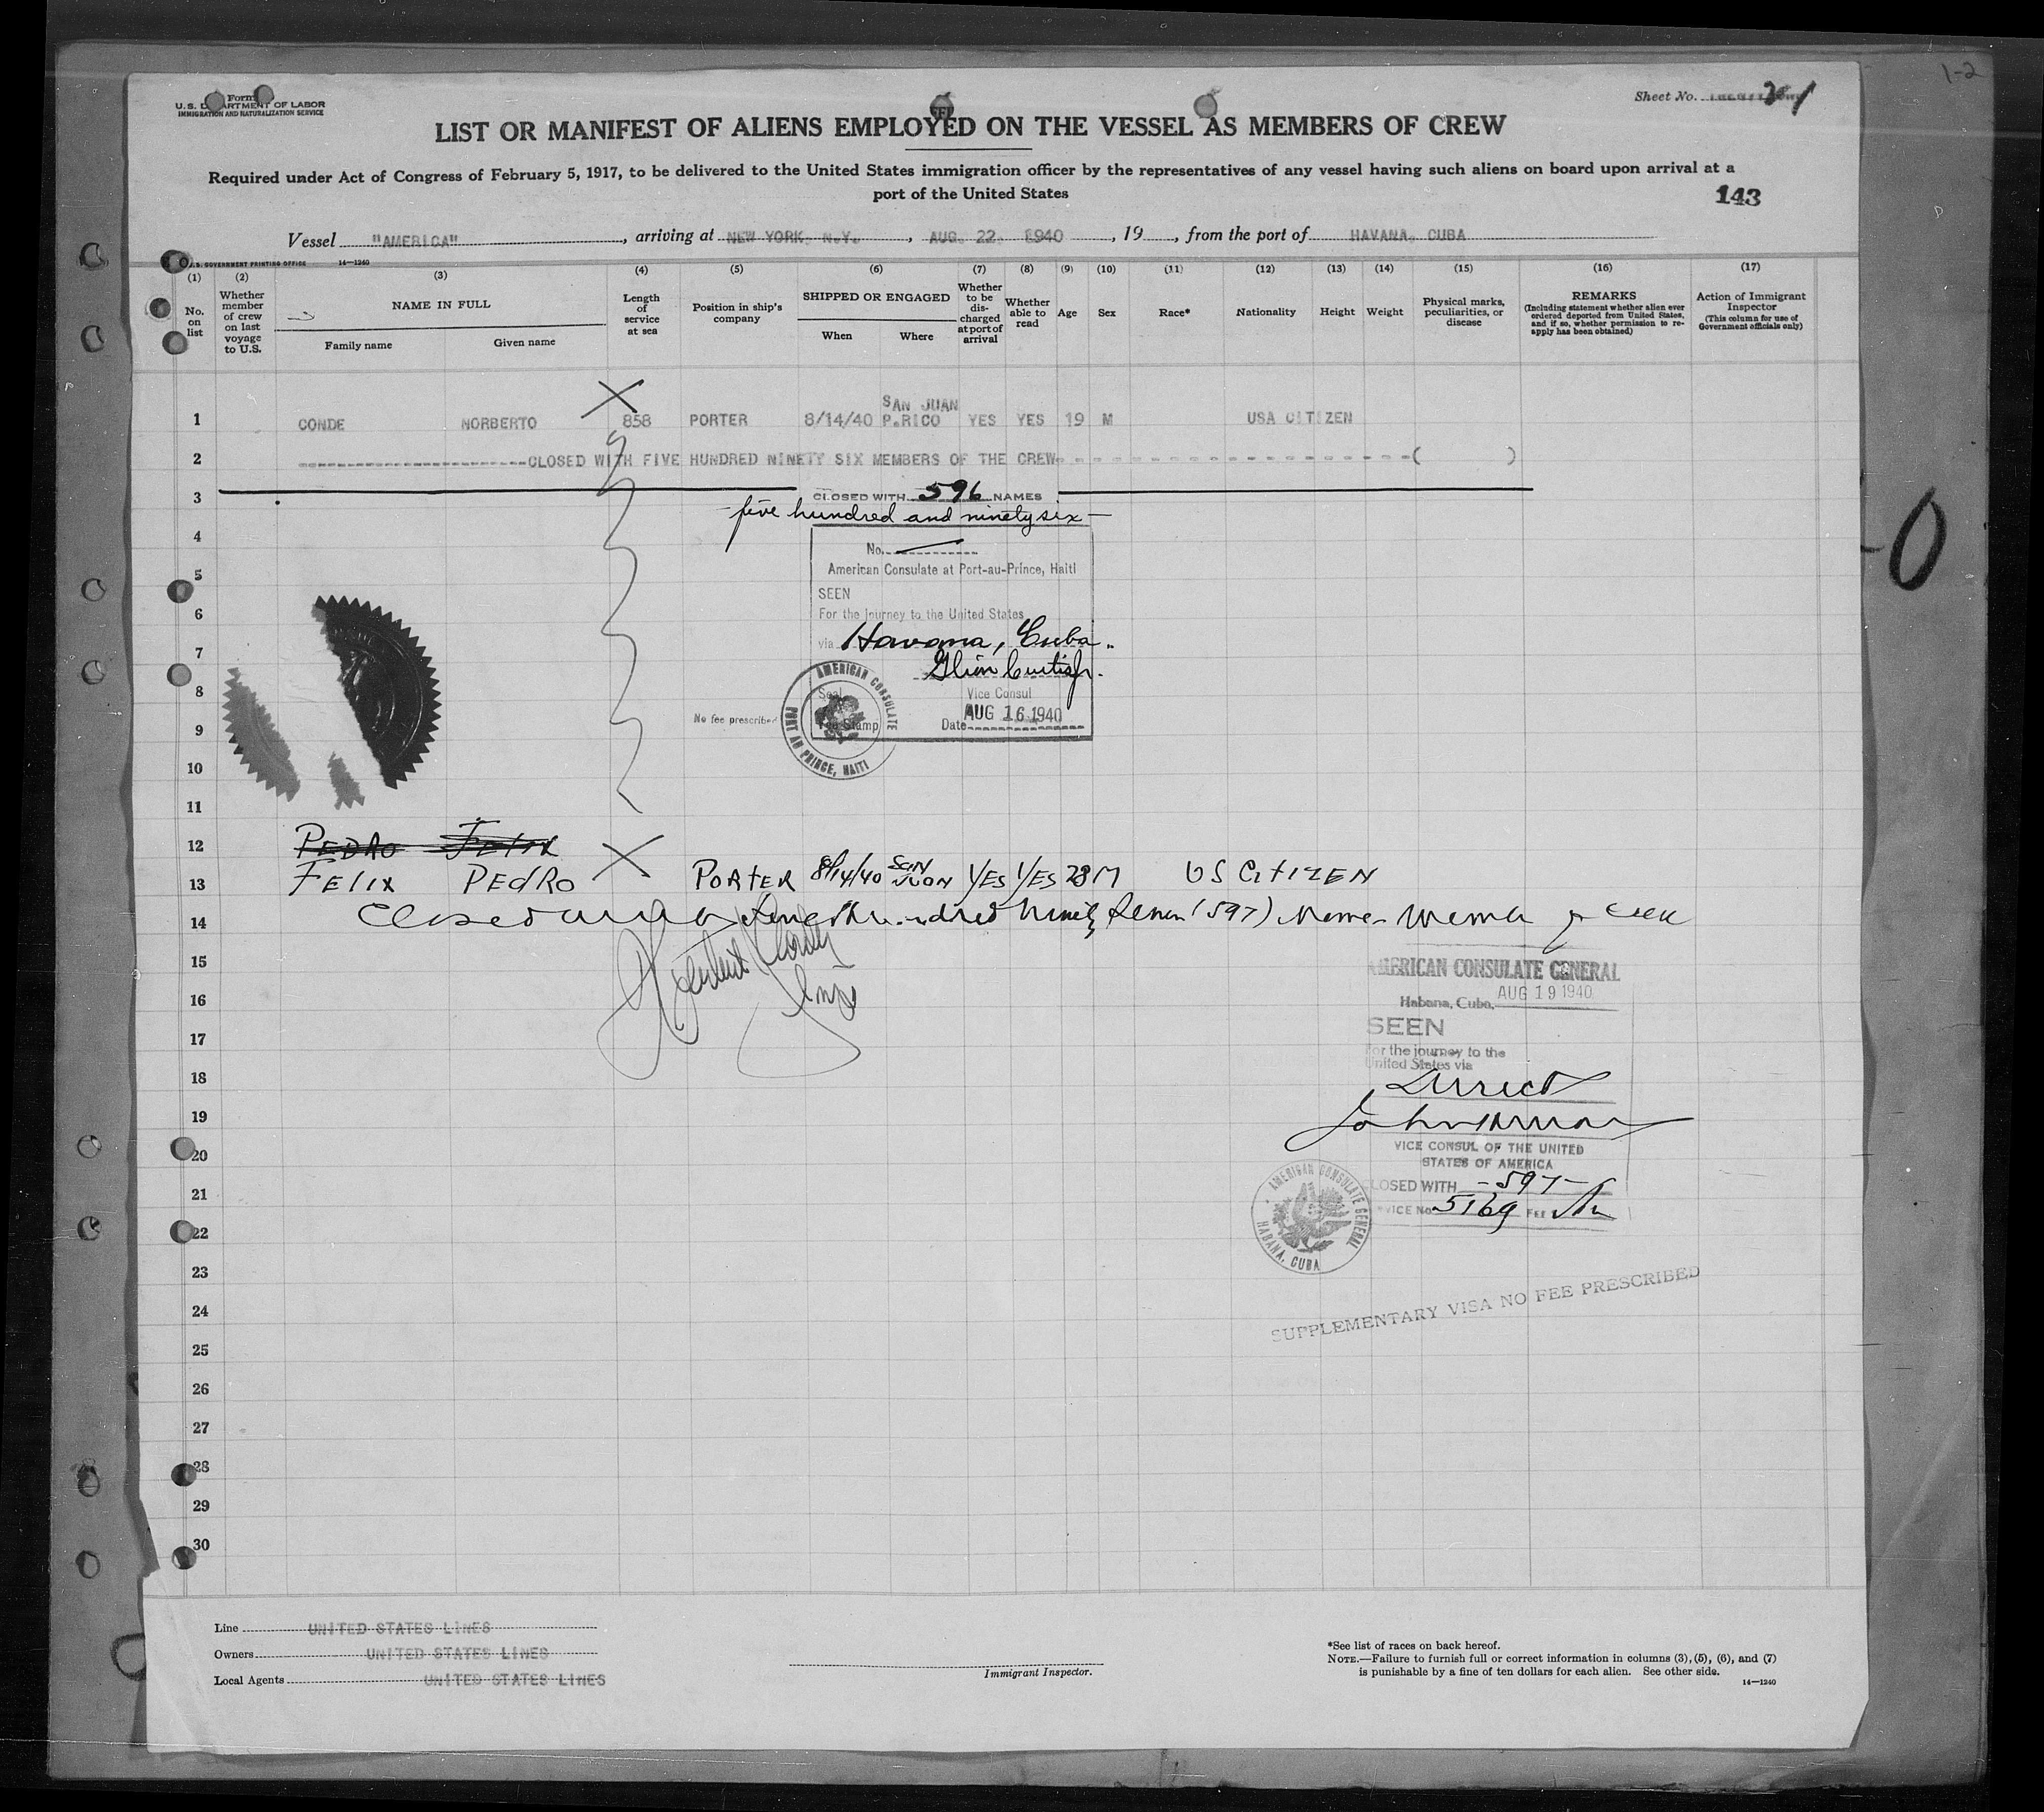 1-2
Form
U.S. DEPARTMENT OF LABOR
IMMIGRATION AND NATURALIZATION SERVICE
Sheet No. 21
LIST OR MANIFEST OF ALIENS EMPLOYED ON THE VESSEL AS MEMBERS OF CREW
Required under Act of Congress of February 5, 1917, to be delivered to the United States immigration officer by the representatives of any vessel having such aliens on board upon arrival at a
port of the United States
143
Vessel "AMERICA", arriving at NEW YORK, N.Y., AUG. 22, 1940, 19, from the port of HAVANA, CUBA
U.S. GOVERNMENT PRINTING OFFICE 14—1240
(1) (2) (3) (4) (5) (6) (7) (8) (9) (10) (11) (12) (13) (14) (15) (16) (17)
No. on list
Whether member of crew on last voyage to U.S.
NAME IN FULL
Family name
Given name
Length of service at sea
Position in ship's company
SHIPPED OR ENGAGED
When
Where
Whether to be discharged at port of arrival
Whether able to read
Age
Sex
Race*
Nationality
Height
Weight
Physical marks, peculiarities, or disease
REMARKS
(Including statement whether alien ever ordered deported from United States, and if so, whether permission to reapply has been obtained)
Action of Immigrant Inspector
(This column for use of Government officials only)
1 CONDE NORBERTO 858 PORTER 8/14/40 SAN JUAN P.RICO YES YES 19 M USA CITIZEN
2 CLOSED WITH FIVE HUNDRED NINETY SIX MEMBERS OF THE CREW ( )
3 CLOSED WITH 596 NAMES
-five hundred and ninety six-
4
No.
American Consulate at Port-au-Prince, Haiti
5
SEEN
6 For the journey to the United States
via Havana, Cuba.
7
Glion Curtis Jr.
8 Seal Vice Consul
No fee prescribed
Fee Stamp Date AUG 16 1940
AMERICAN CONSULATE
PORT AU PRINCE, HAITI
9
10
11
12 PEDRO FELIX
13 FELIX PEDRO PORTER 8/14/40 SAN JUAN YES YES 28 M US CITIZEN
14 hundred ninety seven (597)
15
AMERICAN CONSULATE GENERAL
Habana, Cuba, AUG 19 1940
16
SEEN
17
For the journey to the
United States via
18 Direct
19
VICE CONSUL OF THE UNITED
20 STATES OF AMERICA
CLOSED WITH -597-
21
SERVICE No. 5169 FEE
AMERICAN CONSULATE GENERAL
HABANA, CUBA
22
23
SUPPLEMENTARY VISA NO FEE PRESCRIBED
24
25
26
27
28
29
30
Line UNITED STATES LINES
Owners UNITED STATES LINES
Local Agents UNITED STATES LINES
Immigrant Inspector.
*See list of races on back hereof.
NOTE.—Failure to furnish full or correct information in columns (3), (5), (6), and (7)
is punishable by a fine of ten dollars for each alien. See other side.
14—1240